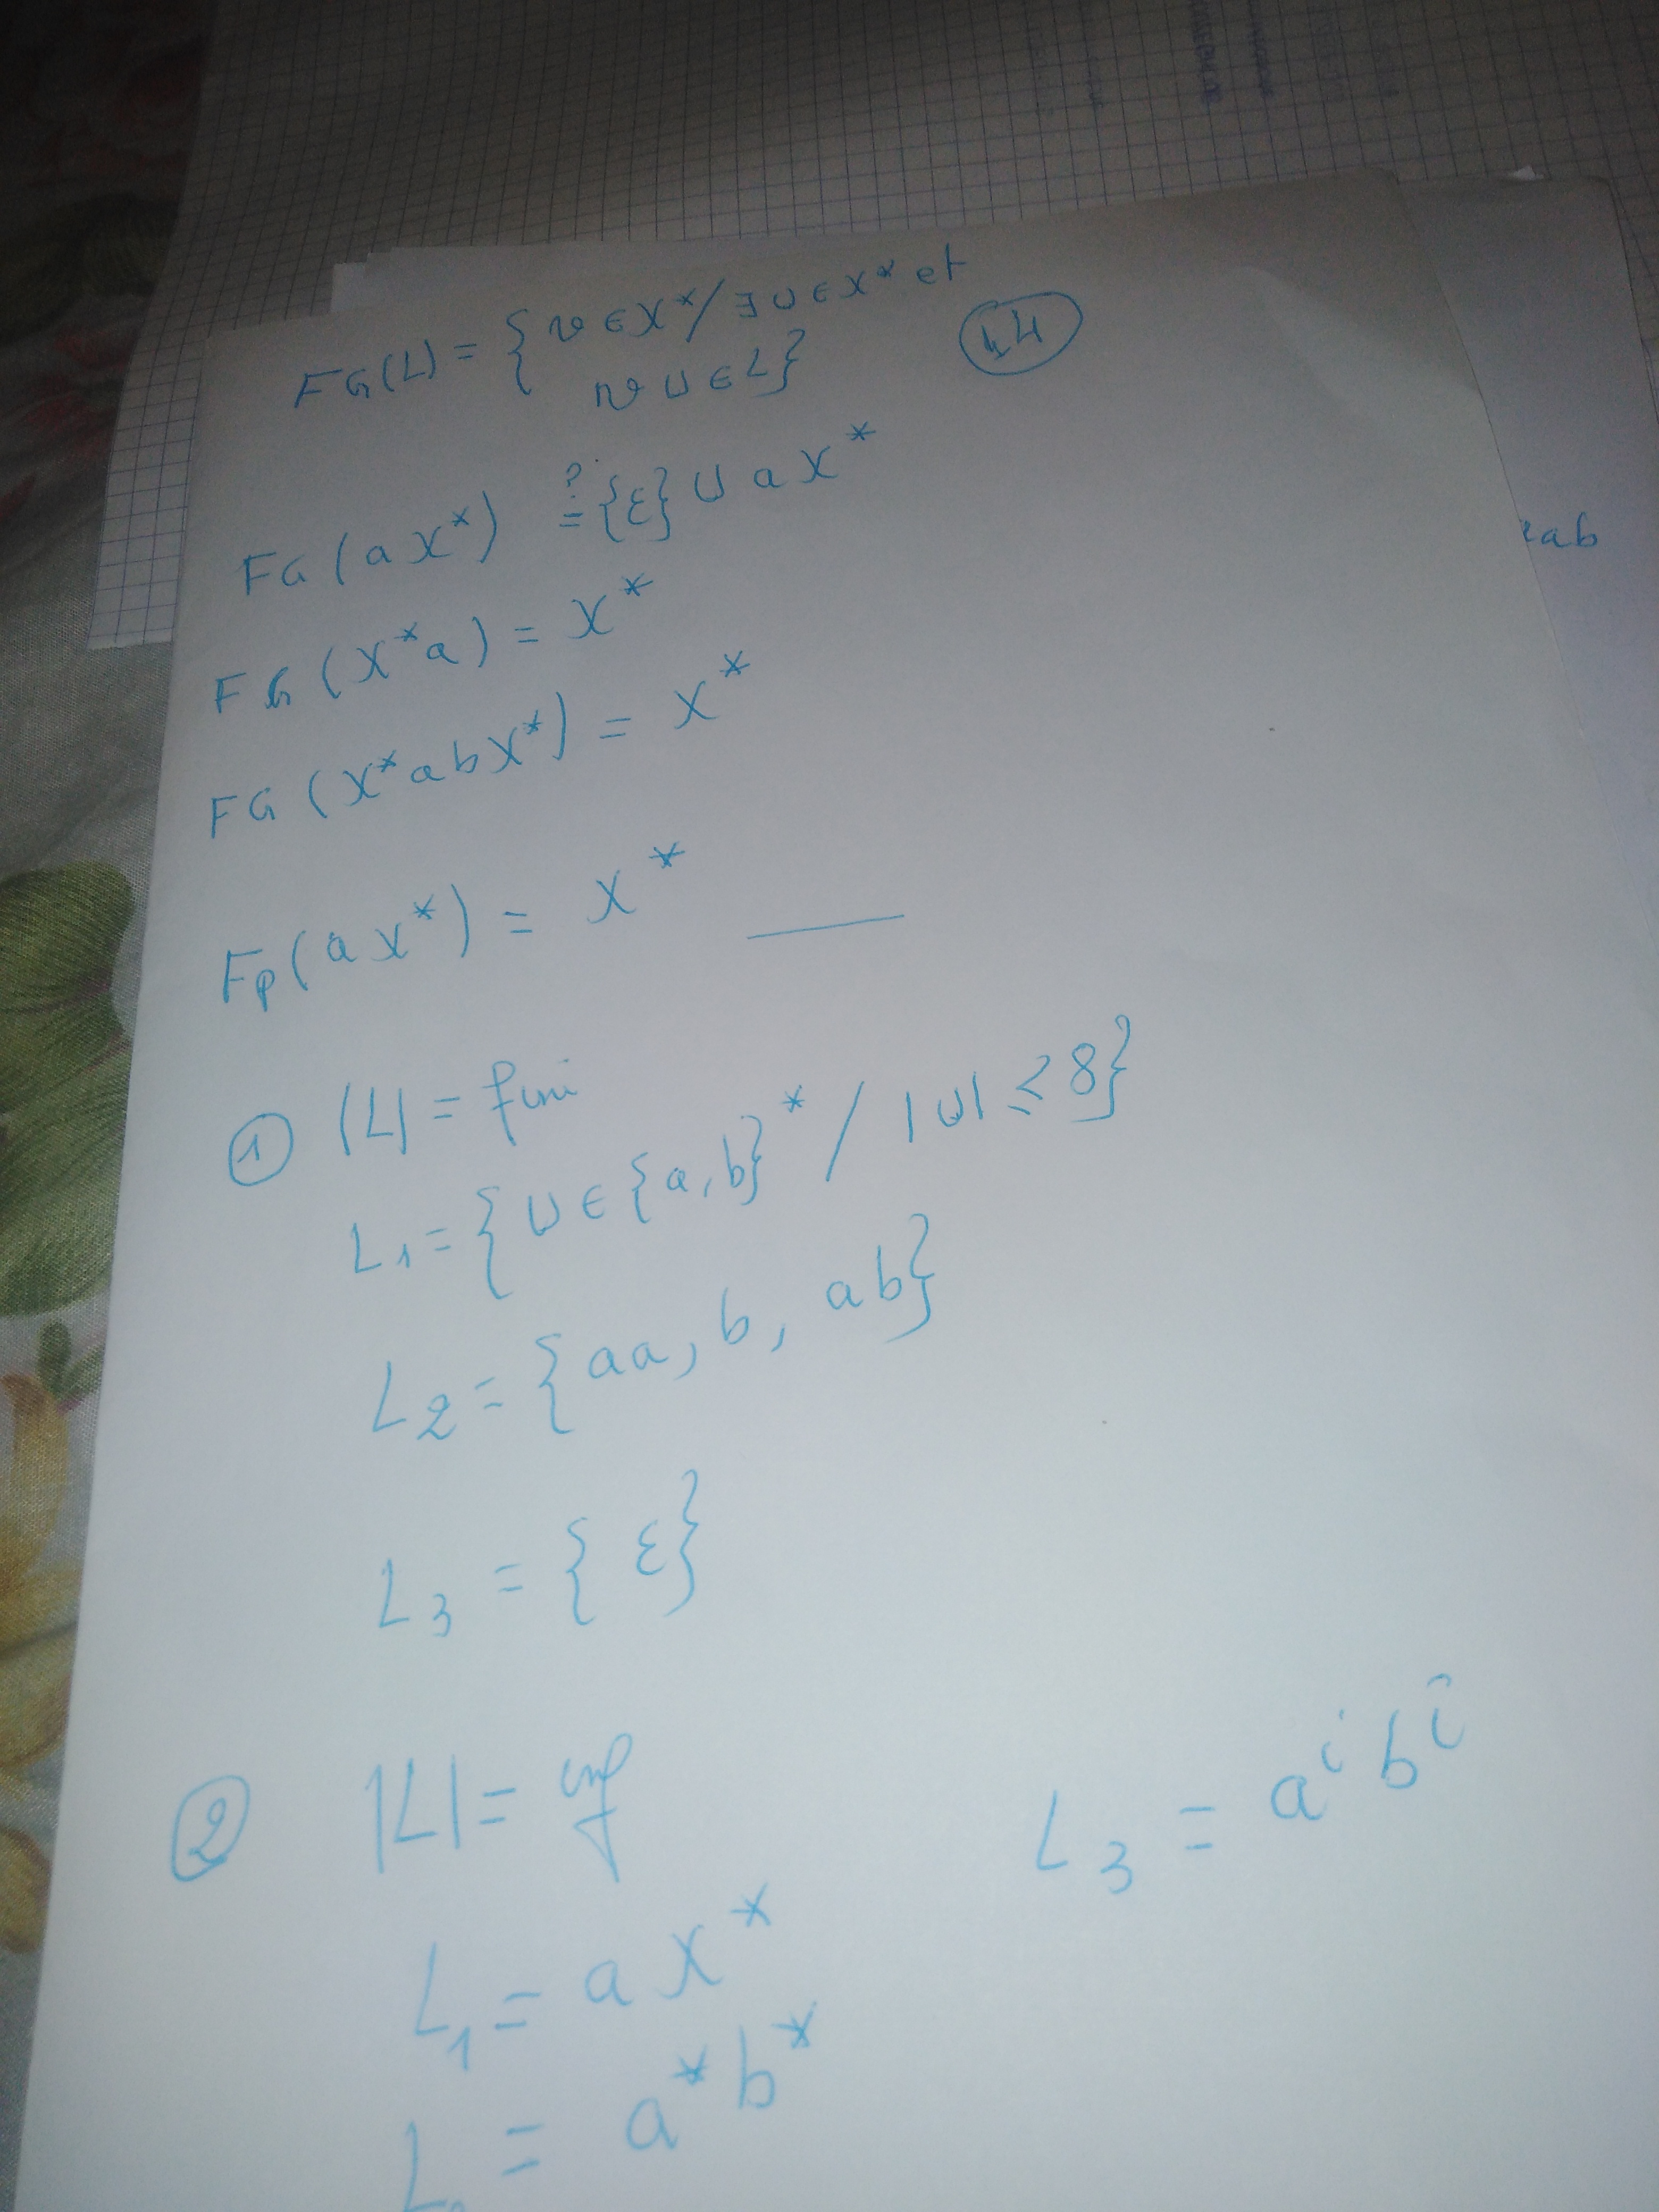 FG(L) = { v ∈ X* / ∃ u ∈ X* et
v u ∈ L}
FG (a X*) ?= {ε} ∪ a X*
FG (X*a) = X*
FG (X*abX*) = X*
Fp(a X*) = X*
① |L| = fini
L1 = { u ∈ {a, b}* / |u| ≤ 8}
L2 = { aa, b, ab}
L3 = { ε}
② |L| = inf
L3 = a^i b^i
L1 = a X*
= a* b*
ab